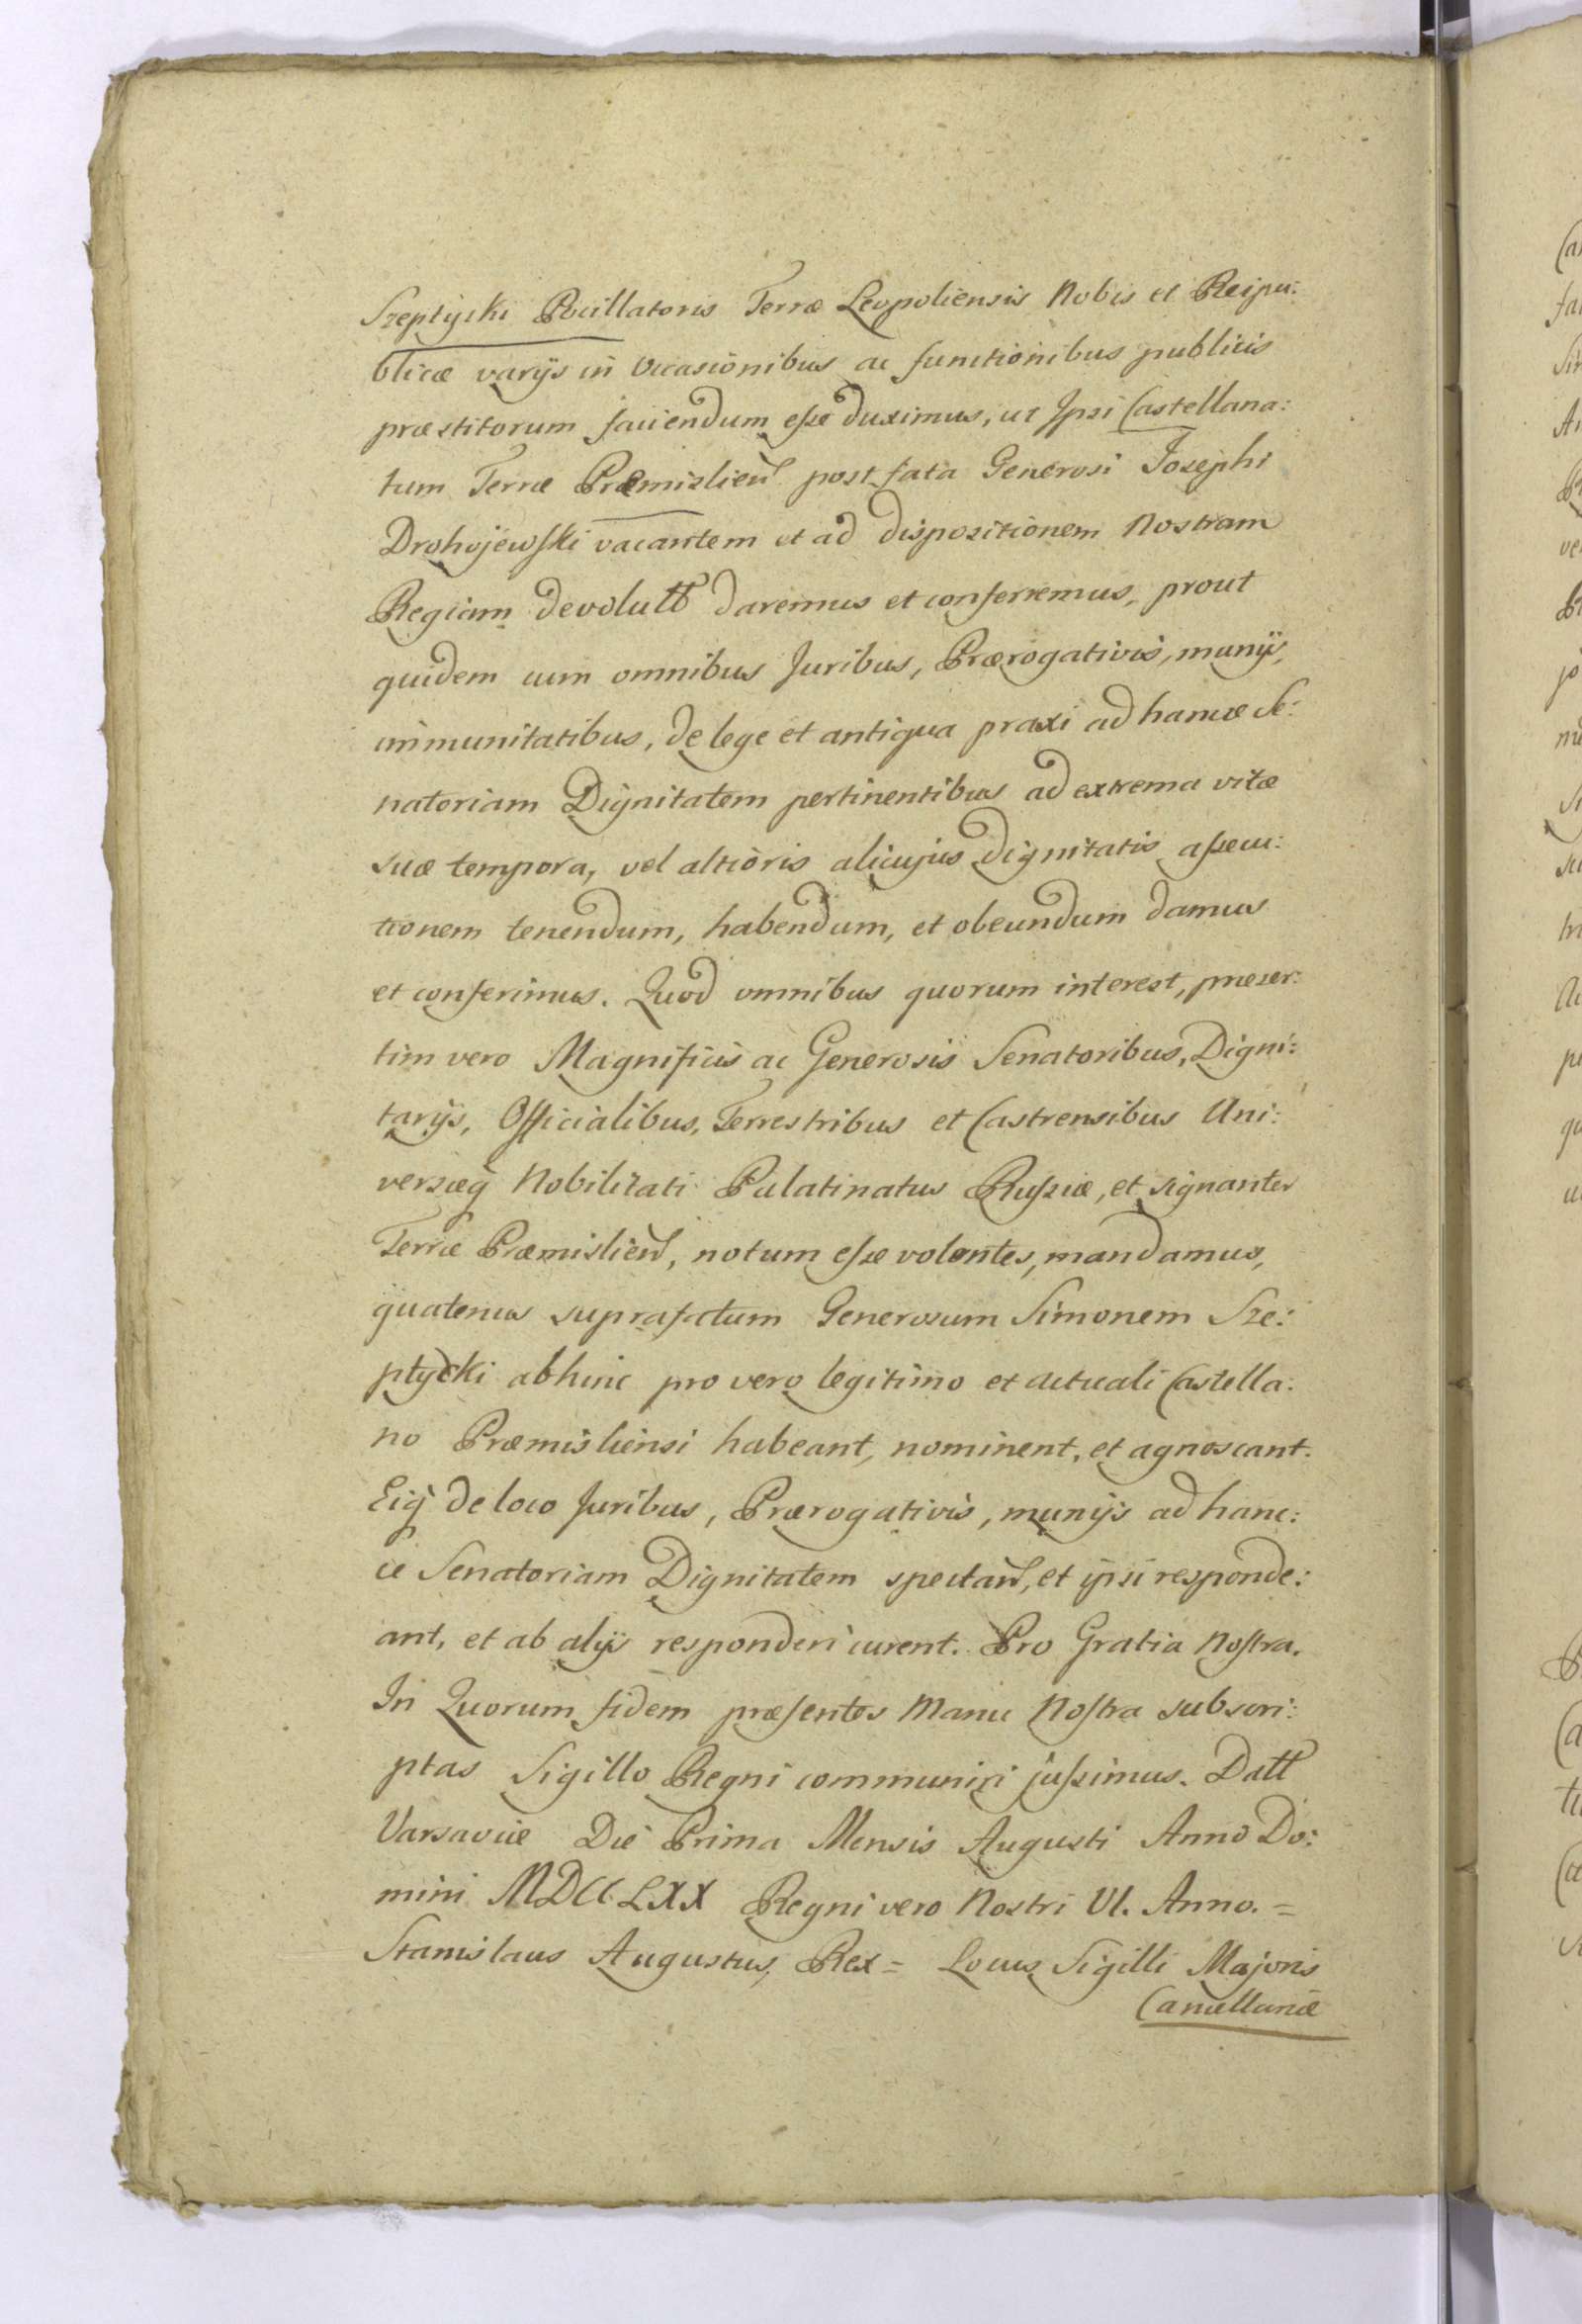 Szeptycki Pocillatoris Terræ Leopoliensis Nobis et Reipu:
blicæ varijs in occasionibus ac functionibus publicis
præstitorum faciendum esse duximus, ut Ipsi Castellana:
tum Terræ Præmislien̄ post fata Generosi Josephi
Drohojewski vacantem et ad dispositionem Nostram
Regiam devolutt daremus et conferremus, prout
quidem cum omnibus Juribus, Prærogativis, munijs,
immunitatibus, de lege et antiqua praxi ad hancce Se:
natoriam Dignitatem pertinentibus ad extrema vitæ
suæ tempora, vel altioris alicujus dignitatis assecu:
tionem tenendum, habendum, et obeundum damus
et conferimus. Quod omnibus quorum interest, præser:
tim vero Magnificis ac Generosis Senatoribus, Digni:
tarijs, Officialibus, Terrestribus et Castrensibus Uni:
versæq̃ Nobilitati Palatinatus Russiæ, et signanter
Terræ Præmislien̄, notum esse volentes, mandamus,
quatenus suprafatum Generosum Simonem Sze:
ptycki abhinc pro vero legitimo et actuali Castella:
no Præmisliensi habeant, nominent, et agnoscant.
Eiq̃ de loco Juribus, Prærogativis, munijs ad hanc:
ce Senatoriam Dignitatem spectan̄, et ipsi responde:
ant, et ab alijs responderi curent. Pro Gratia Nostra.
In Quorum fidem præsentes Manu Nostra subscri:
ptas Sigillo Regni communiri jussimus. Datt
Varsaviæ Die Prima Mensis Augusti Anno Do:
mini MDCCLXX Regni vero Nostri VI. Anno. =
Stanislaus Augustus, Rex = Locus Sigilli Majoris
Cancellariæ